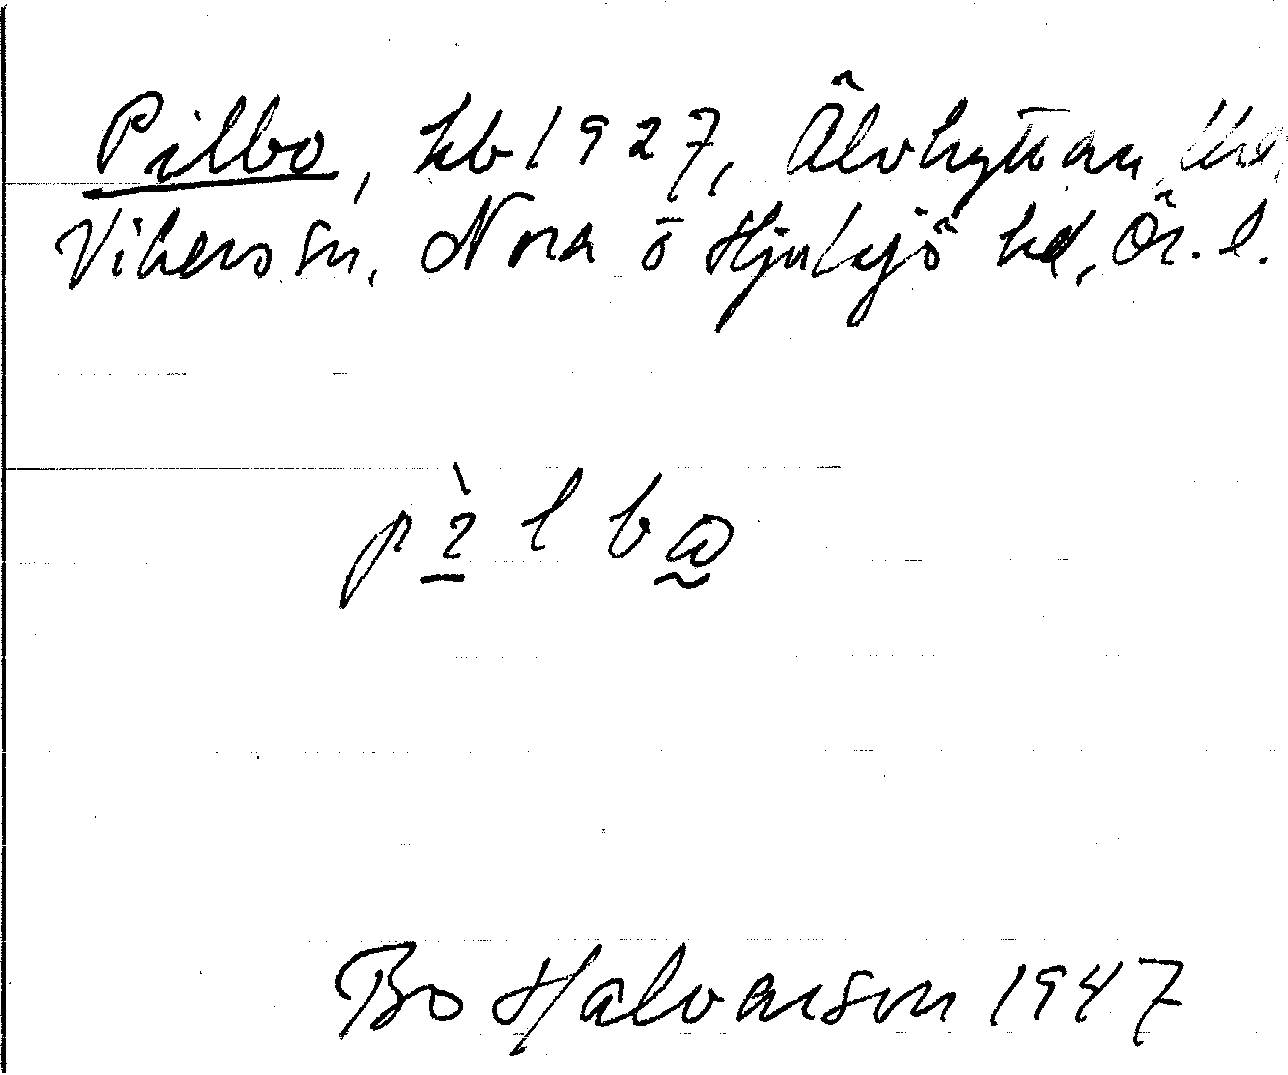 Pilbo, kb 1927, Älvhyttan,
Vikers sn, Nora ō Hjulsjö hd, Ör. l.
pìlbω
Bo Halvarson 1947